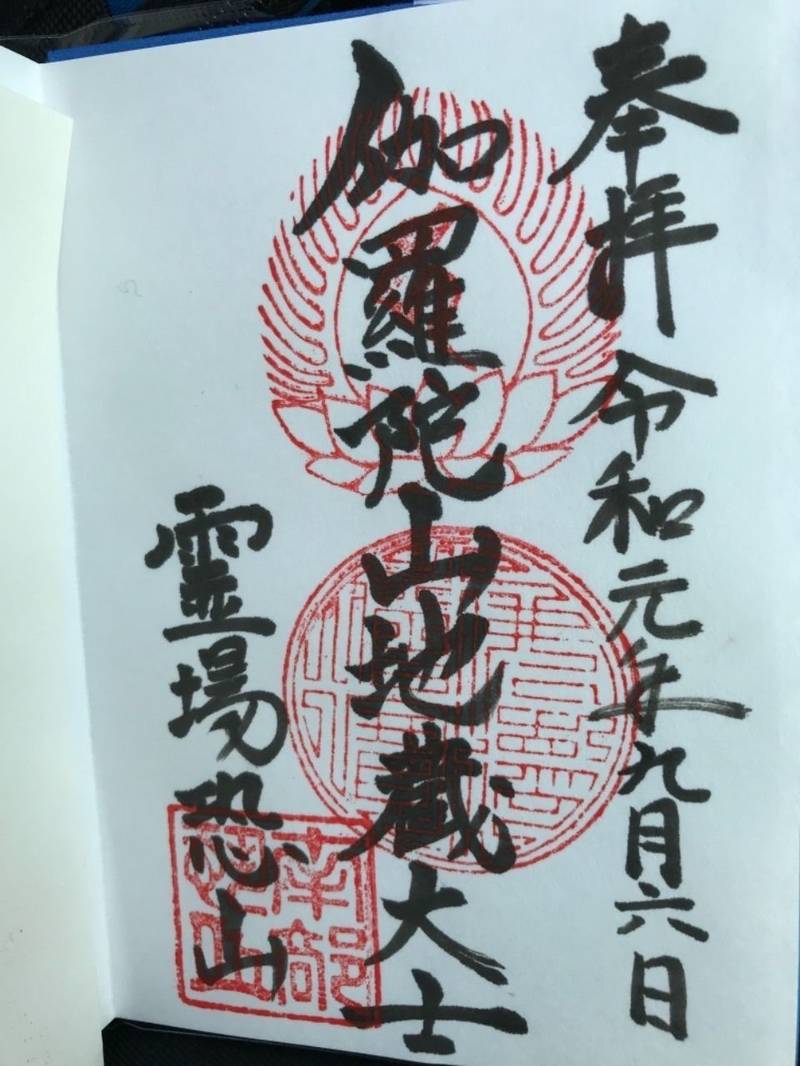 奉拝 令和元年九月六日
伽羅陀山地蔵大士
霊場恐山
南部
恐山